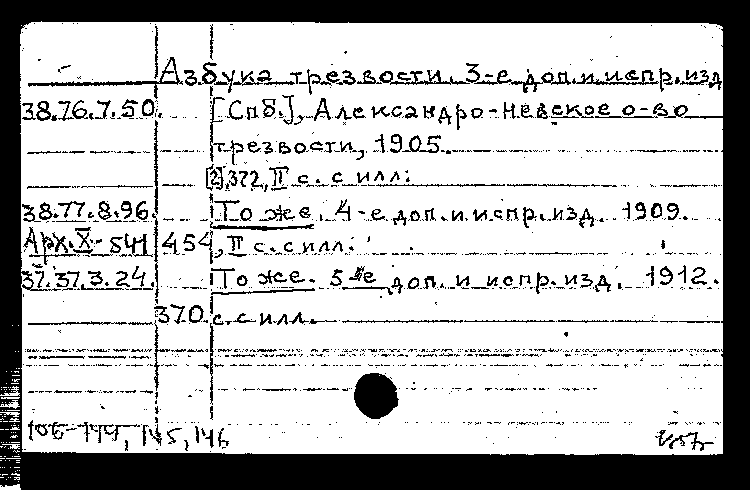 Азбука трезвости. 3-е доп. и испр. изд
38.76.7.50. [Спб.], Александро-Невское о-во
трезвости, 1905.
[2], 372, II с. с илл.
38.77.8.96. То же. 4-е доп. и испр. изд. 1909.
Арх. X - 541 454, II с. с илл.
37.37.3.24. То же. 5-е доп. и испр. изд. 1912.
370 с. с илл.
145, 146